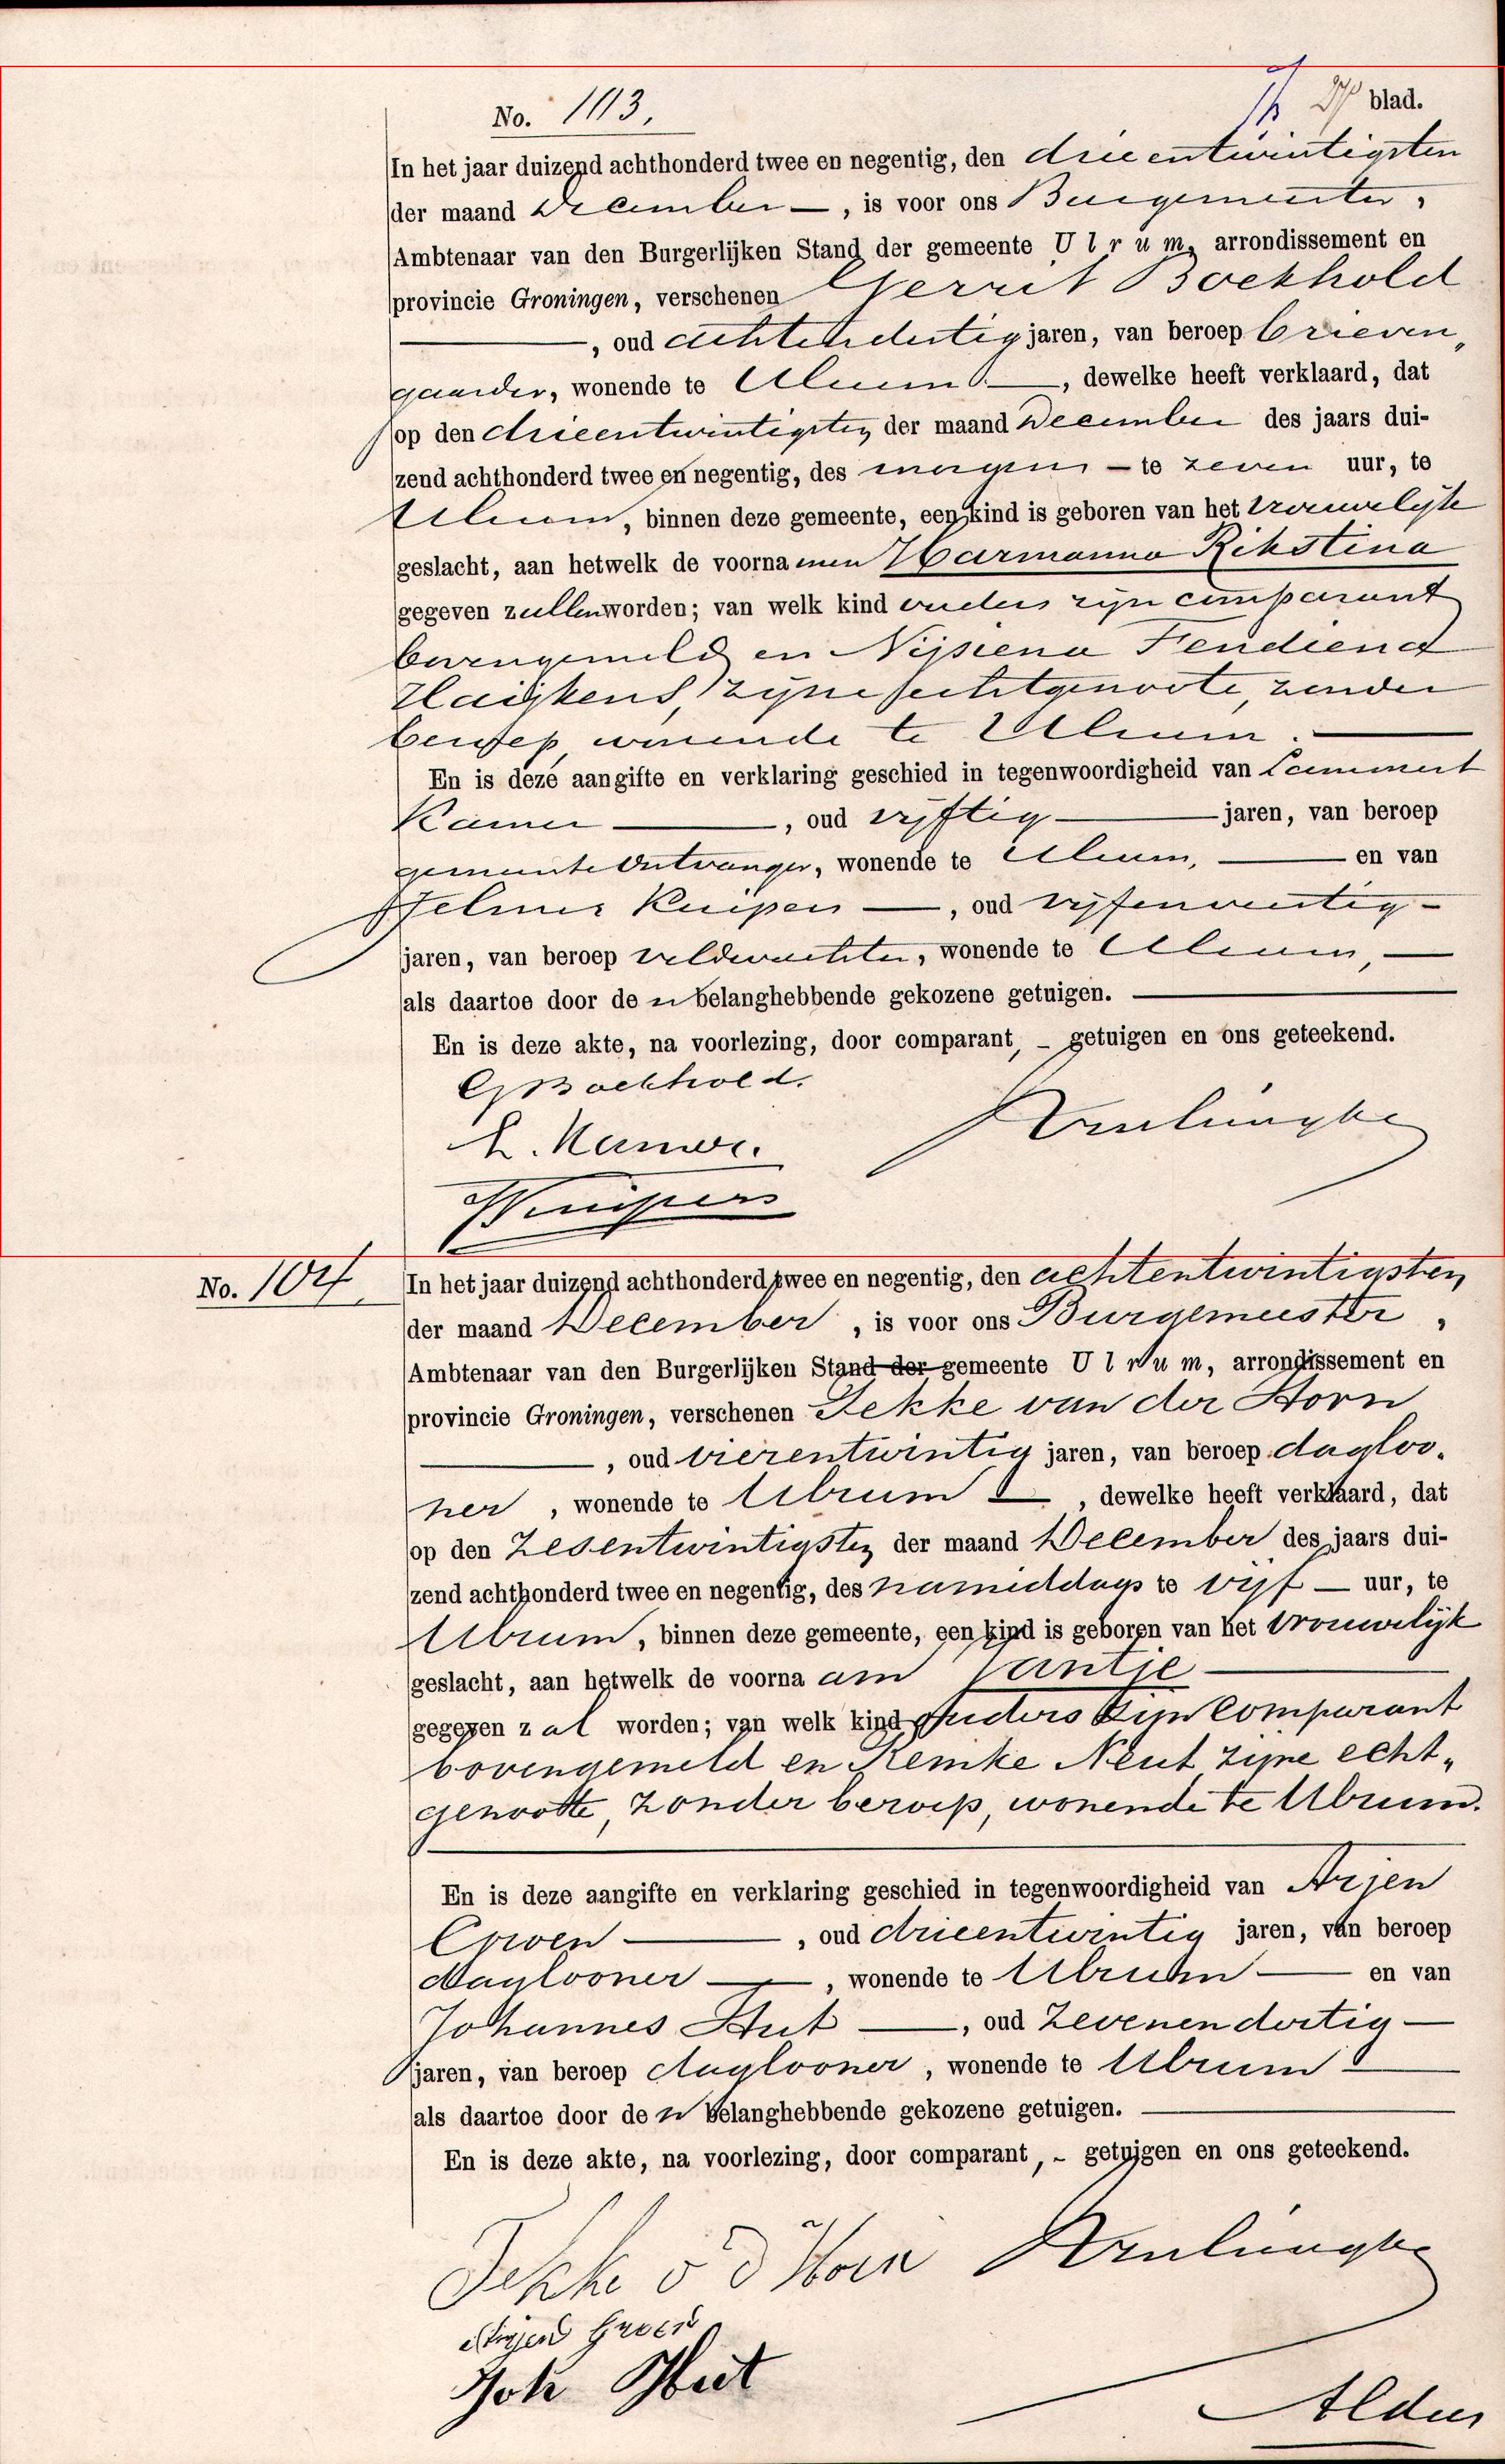 No. 103.
blad.
In het jaar duizend achthonderd twee en negentig, den drieentwintigsten
der maand December —, is voor ons Burgemeester,
Ambtenaar van den Burgerlijken Stand der gemeente Ulrum, arrondissement en
provincie Groningen, verschenen Gerrit Boekhold
—, oud achtendertig jaren, van beroep brieven
gaarder, wonende te Ulrum —, dewelke heeft verklaard, dat
op den drieentwintigsten der maand December des jaars dui-
zend achthonderd twee en negentig, des morgens — te zeven uur, te
Ulrum, binnen deze gemeente, een kind is geboren van het vrouwelijk
geslacht, aan hetwelk de voornamen Harmanna Rikstina
gegeven zullen worden; van welk kind ouders zijn comparant
bovengemeld en Fendiena
zijne echtgenoote, zonder
beroep wonende te Ulrum.
En is deze aangifte en verklaring geschied in tegenwoordigheid van Lammert
—, oud vijftig — jaren, van beroep
gemeente Ontvanger, wonende te Ulrum, — en van
Kuipers —, oud vijfenveertig —
jaren, van beroep veldwachter, wonende te Ulrum, —
als daartoe door de n belanghebbende gekozene getuigen. —
En is deze akte, na voorlezing, door comparant, - getuigen en ons geteekend.
G Boekhold.
Kuipers
No. 104
In het jaar duizend achthonderd twee en negentig, den achtentwintigsten
der maand December, is voor ons Burgemeester,
Ambtenaar van den Burgerlijken Stand der gemeente Ulrum, arrondissement en
provincie Groningen, verschenen Jekke van der Horn
—, oud vierentwintig jaren, van beroep dagloo-
ner, wonende te Ulrum —, dewelke heeft verklaard, dat
op den zesentwintigsten der maand December des jaars dui-
zend achthonderd twee en negentig, des namiddags te vijf — uur, te
Ulrum, binnen deze gemeente, een kind is geboren van het vrouwelijk
geslacht, aan hetwelk de voornaam Jantje —
gegeven zal worden; van welk kind ouders zijn comparant
bovengemeld en Remke Neut zijne echt-
genootte, zonder beroep, wonende te Ulrum.
En is deze aangifte en verklaring geschied in tegenwoordigheid van Arjen
—, oud drieentwintig jaren, van beroep
daglooner —, wonende te Ulrum — en van
Johannes Hut —, oud zevenendertig —
jaren, van beroep daglooner, wonende te Ulrum —
als daartoe door de n belanghebbende gekozene getuigen. —
En is deze akte, na voorlezing, door comparant, - getuigen en ons geteekend.
Jekke v d Horn
Joh Hut
Aldus